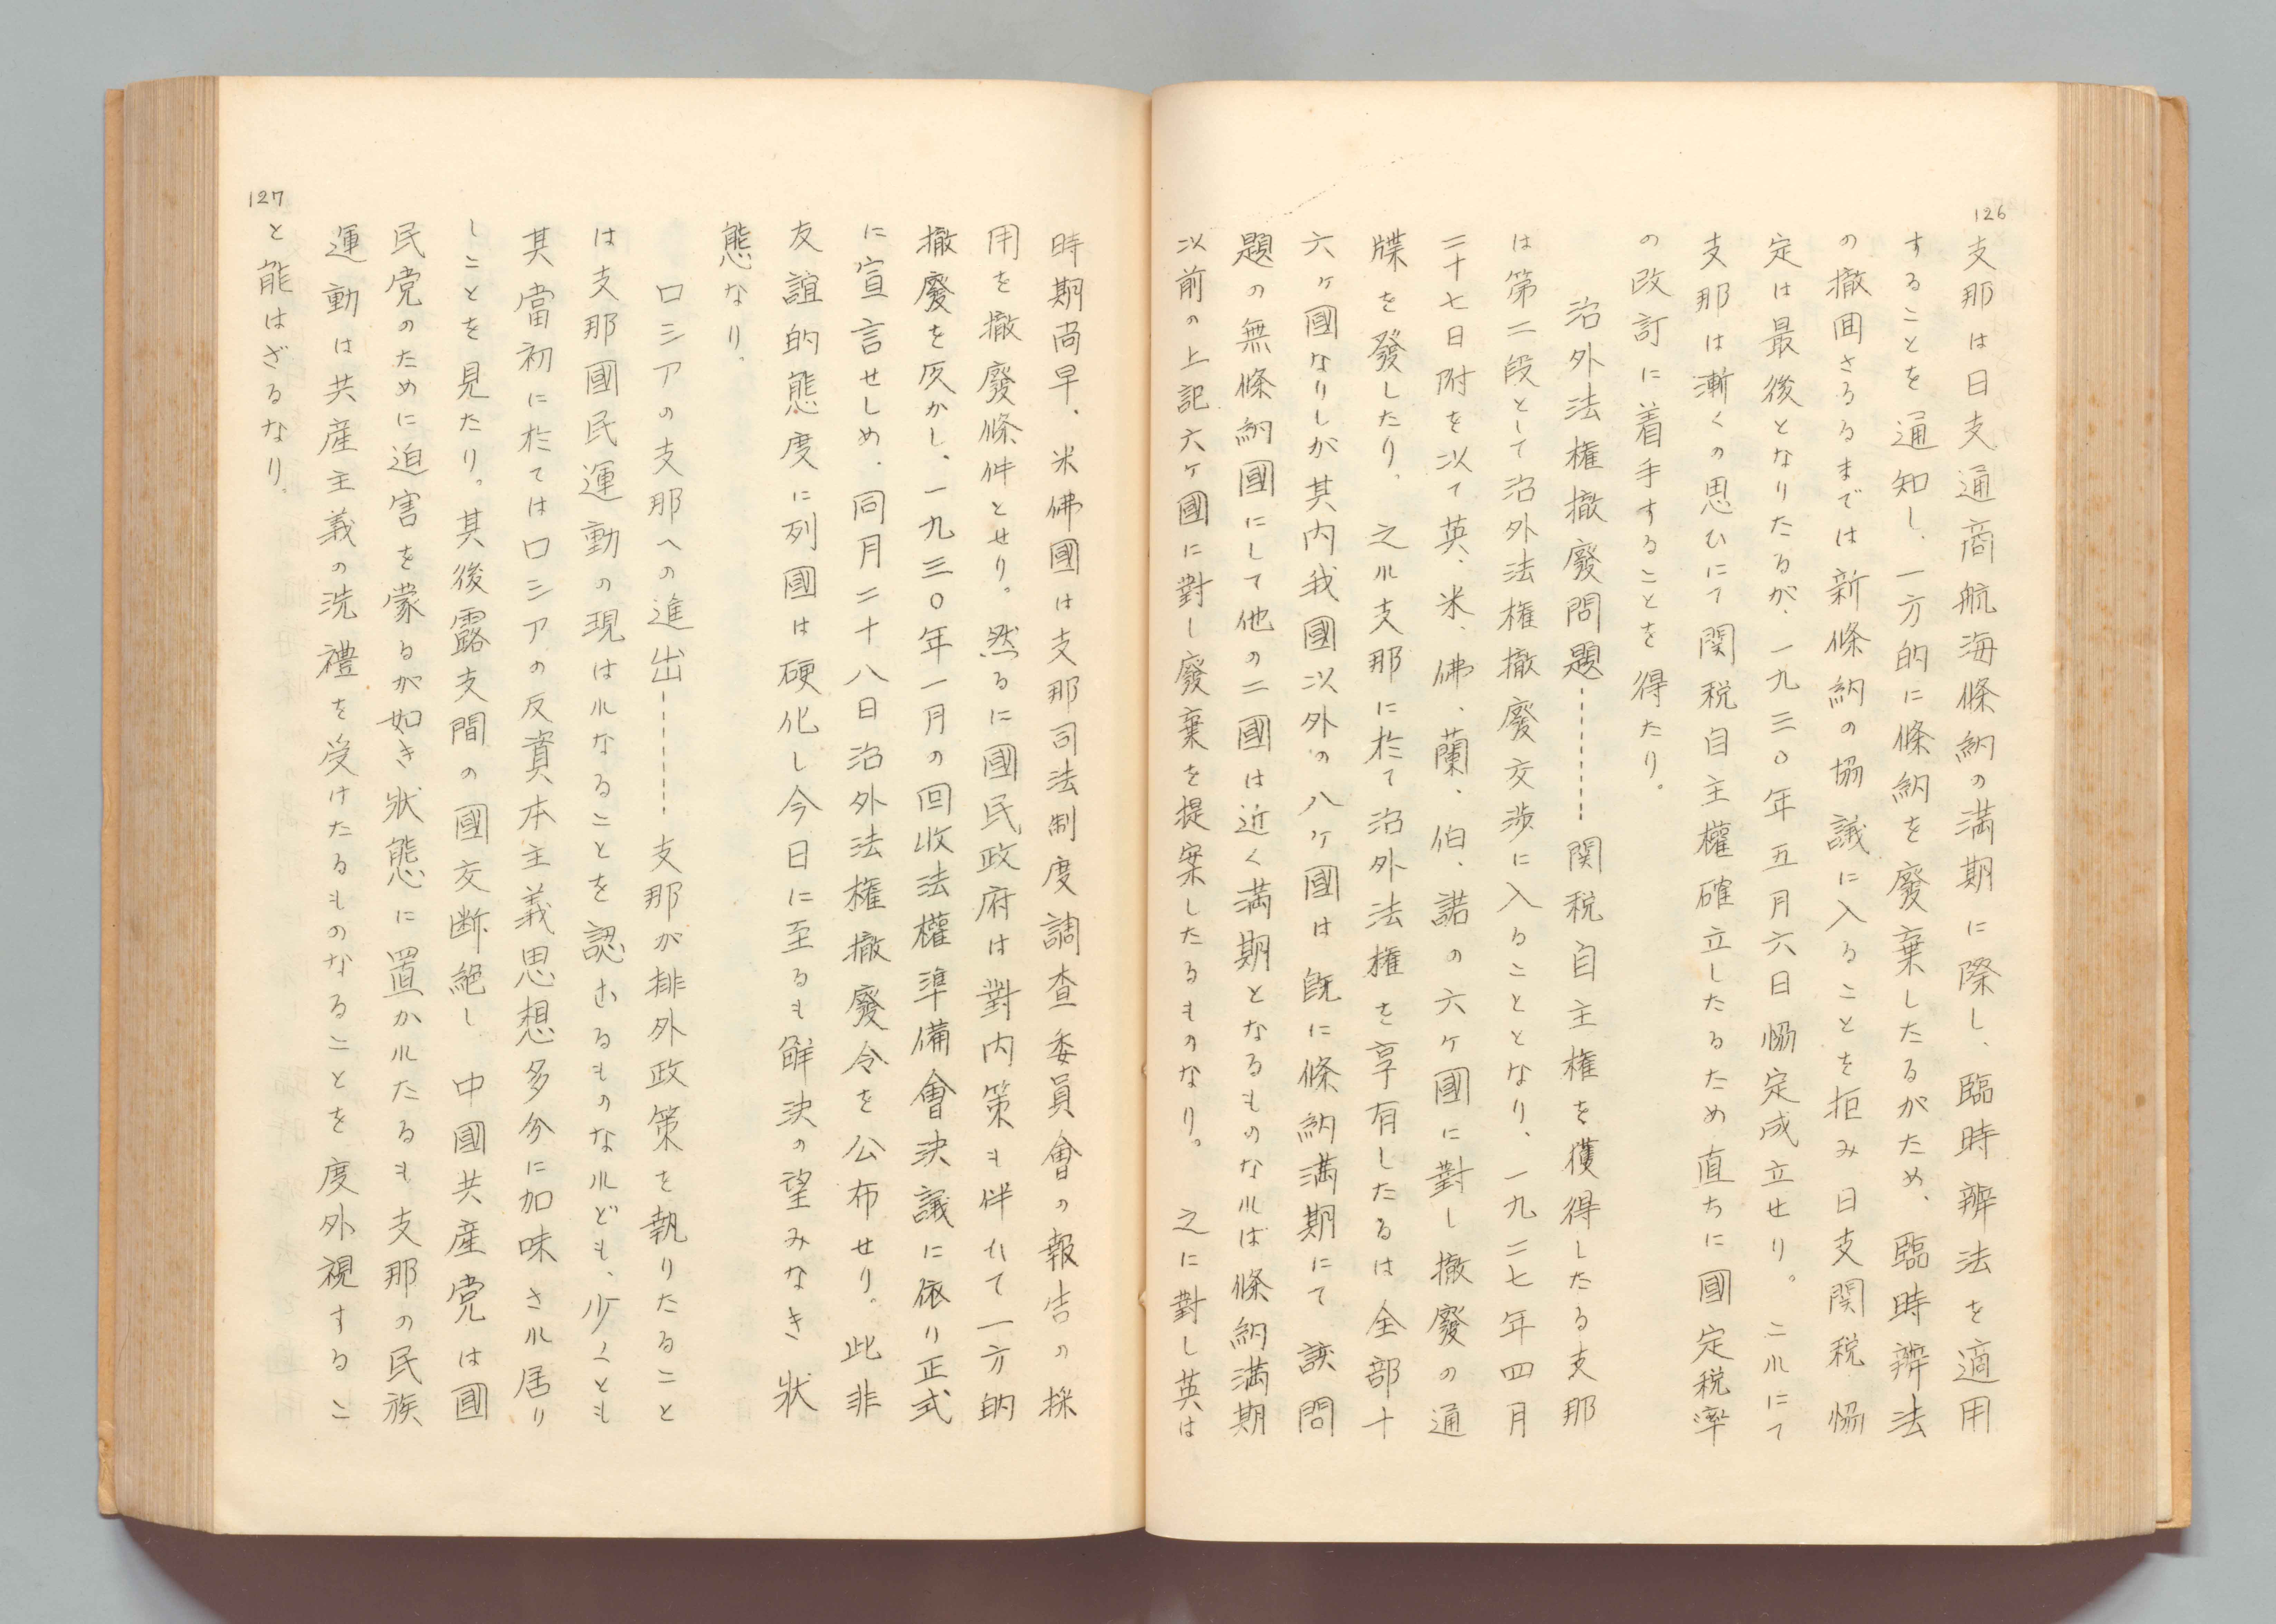 126
支那は日支通商航海條約の満期に際し、臨時辨法を適用
することを通知し、一方的に條約を廢棄したるがため、臨時辨法
の撤囬さるるまでは新條約の協議に入ることを拒み日支関税協
定は最後となりたるが、一九三〇年五月六日協定成立せり。こルにて
支那は漸くの思ひにて関税自主權確立したるため直ちに國定税率
の改訂に着手することを得たり。
治外法権撤廢問題………関税自主権を獲得したる支那
は第二段として治外法権撤廢交渉に入ることとなり、一九二七年四月
二十七日附を以て英、米、佛、蘭、伯、諾の六ヶ國に對し撤廢の通
牒を發したり。之ル支那に於て治外法権を享有したるは全部十
六ヶ國なりしが其内我國以外の八ヶ國は既に條約満期にて該問
題の無條約國にして他の二國は近く満期となるものなルば條約満期
以前の上記六ヶ國に對し廢棄を提案したるものなり。之に對し英は
時期尚早、米佛國は支那司法制度調査委員會の報告の採
用を撤廢條件とせり。然るに國民政府は對内策も伴ルて一方的
撤廢を仄かし、一九三〇年一月の回收法權準備會決議に依り正式
に宣言せしめ、同月二十八日治外法権撤廢令を公布せり。此非
友誼的態度に列國は硬化し今日に至るも解決の望みなき狀
態なり。
ロシアの支那への進出………支那が排外政策を執りたること
は支那國民運動の現はルなることを認むるものなルども、少くとも
其當初に於てはロシアの反資本主義思想多分に加味さル居り
しことを見たり。其後露支間の國交断絶し中國共産党は國
民党のために迫害を蒙るが如き狀態に置かルたるも支那の民族
運動は共産主義の洗禮を受けたるものなることを度外視するこ
と能はざるなり。
127